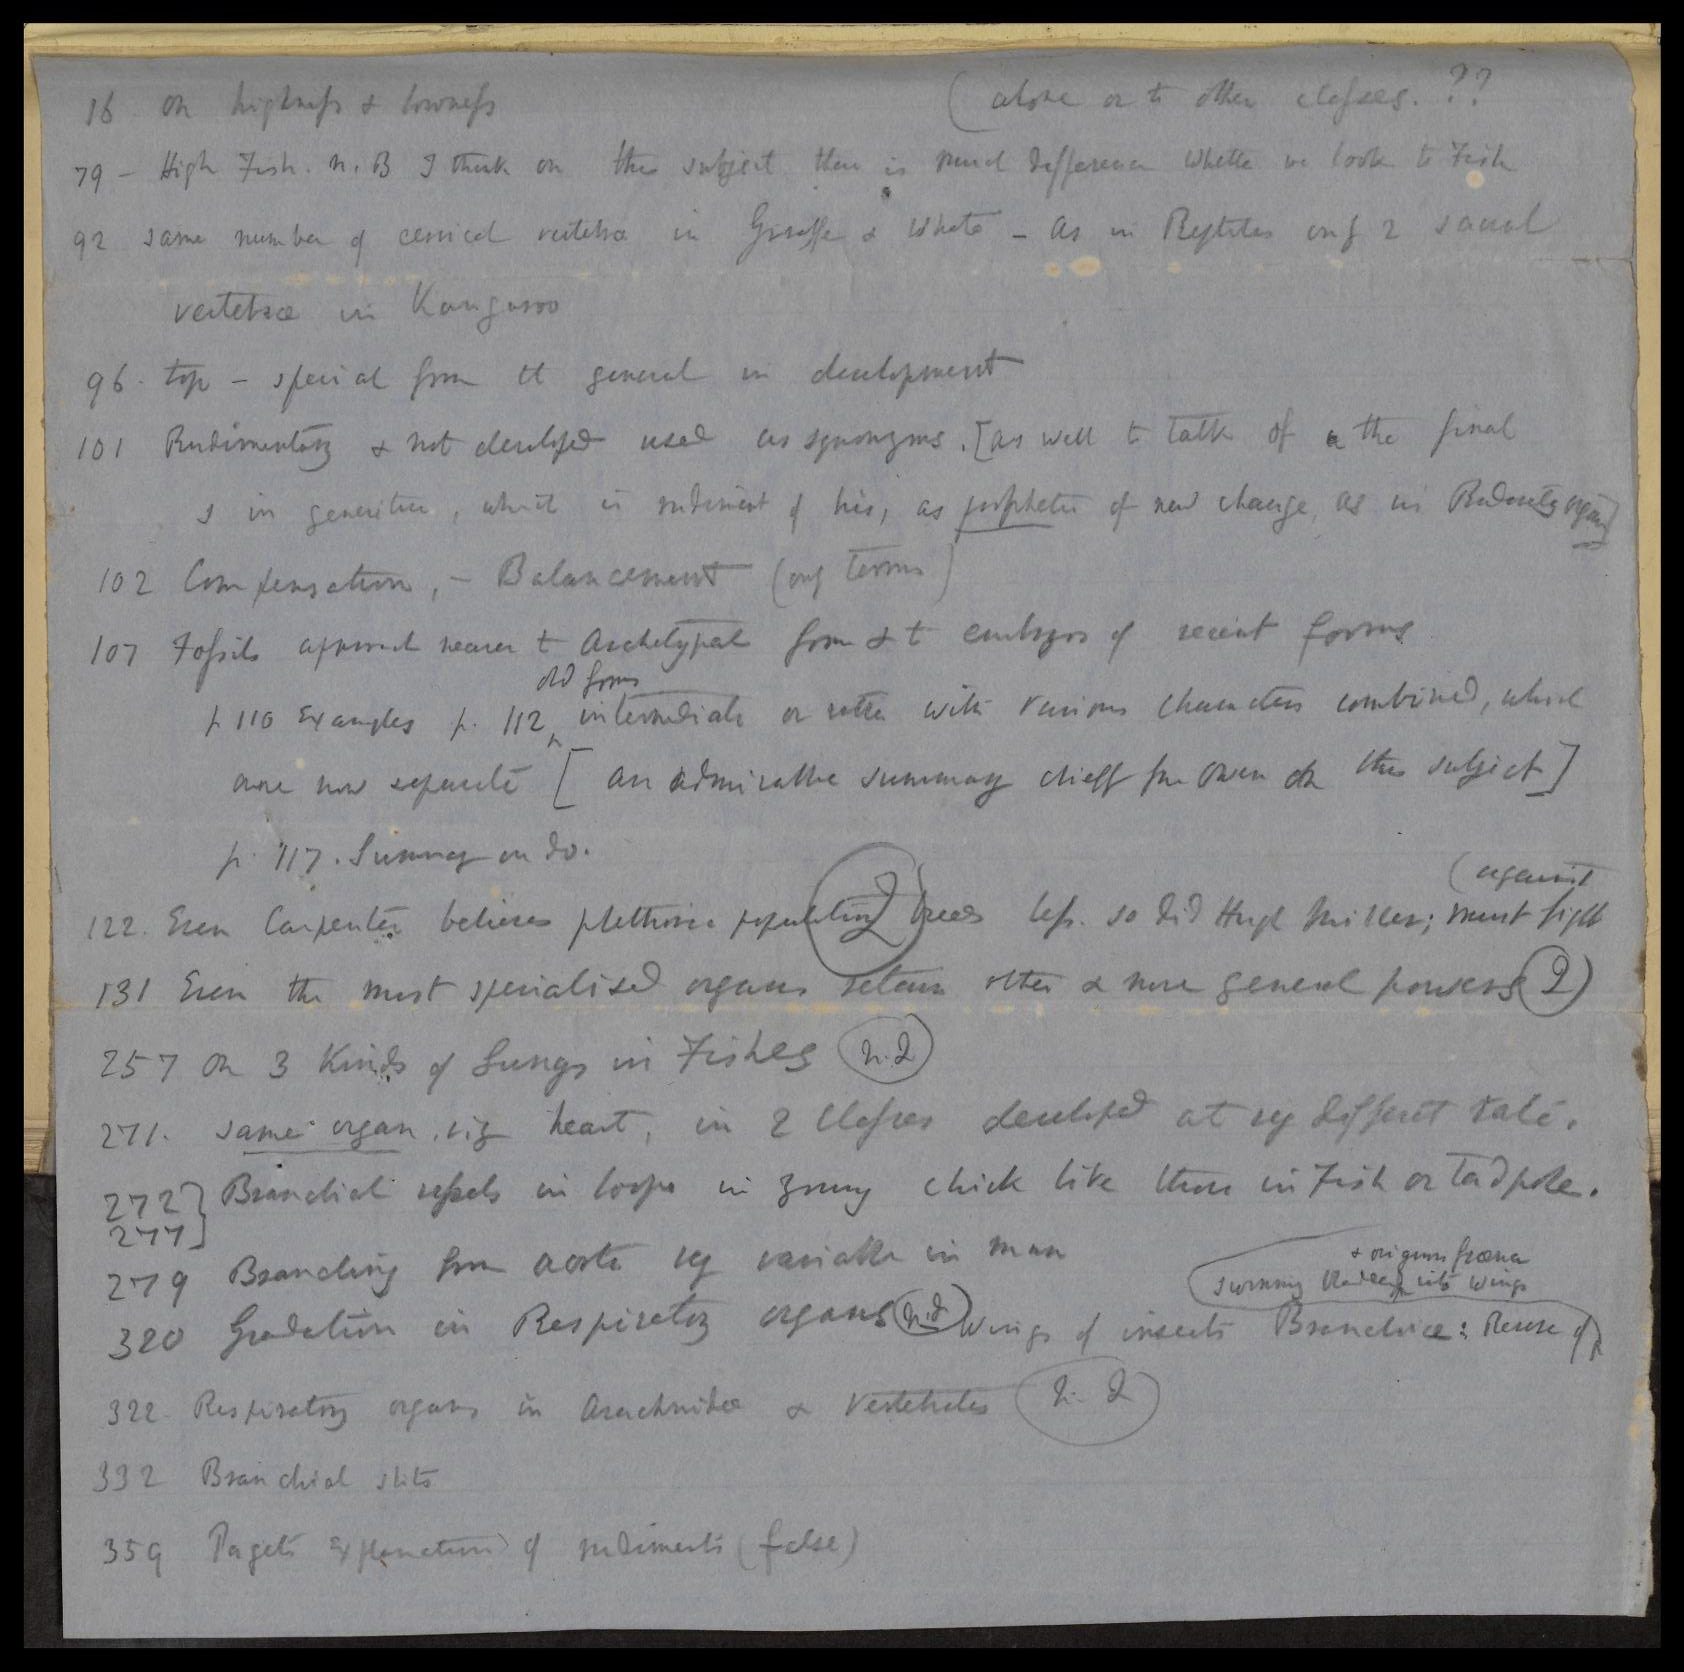 16 On highness & lowness (alone or to other classes. ??
79 – High Fish. N.B I think on this subject there is much difference whether we look to Fish
92 same number of cervical vertebræ in Giraffe & Whale – as in Reptiles only 2 sacral
vertebræ in Kangaroo
96. top – special from the general in development
101 Rudimentary & not developed used as synonyms. [as well to talk of the final
s in genitive, which is rudiment of his, as prophetic of new change, as in Rudimentary organs]
102 Compensation, – Balancement (only terms)
107 Fossils approach nearer to Archetypal form & to embryos of recent forms
p 110 Examples p. 112, old forms intermediate or rather with various characters combined, which
are now separate [an admirable summary chiefly from Owen on this subject]
p. 117. Summary on do.
(against
122. Even Carpenter believes plethoric population breeds less. so did Hugh Miller; must fight
131 Even the most specialised organs retain other & more general powers (Q)
257 On 3 Kinds of Lungs in Fishes (N.Q)
271. same organ, viz heart, in 2 Classes developed at very different rate.
272} Branchial vessels in loops in young chick like those in Fish or tadpole.
277}
279 Branching from aorta very variable in man
& ovigerous fræna
swimming bladder into wings
320 Gradation in Respiratory organs (N.Q) Wings of insects Branchiæ: Reverse of
322. Respiratory organs in Arachnidæ & Vertebrates (N.Q)
332 Branchial slits
359 Paget's explanation of rudiments (false)